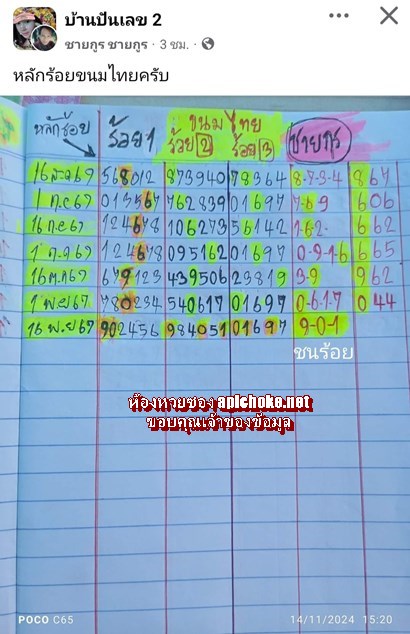 บ้านปันเลข 2
ชายกูร ชายกูร · 3 ชม. ·
หลักร้อยขนมไทยครับ
หลักร้อย ร้อย 1 ขนมไทย ร้อย 2 ร้อย 3 ชายกูร
16 ส.ค 67 568012 873940 78364 8-7-3-4 867
1 ก.ย 67 013567 762839 01697 7-6-9 606
16 ก.ย 67 124678 106273 56142 1-6-2- 662
1 ต.ค 67 124678 095162 01697 0-9-1-6 665
16 ต.ค 67 679123 439506 23819 3-9 962
1 พ.ย 67 780234 540617 01697 0-6-1-7 044
16 พ.ย 67 902456 984051 01697 9-0-1
ชนร้อย
ห้องหวยซอง apichoke.net
ขอบคุณเจ้าของข้อมูล
POCO C65 14/11/2024 15:20